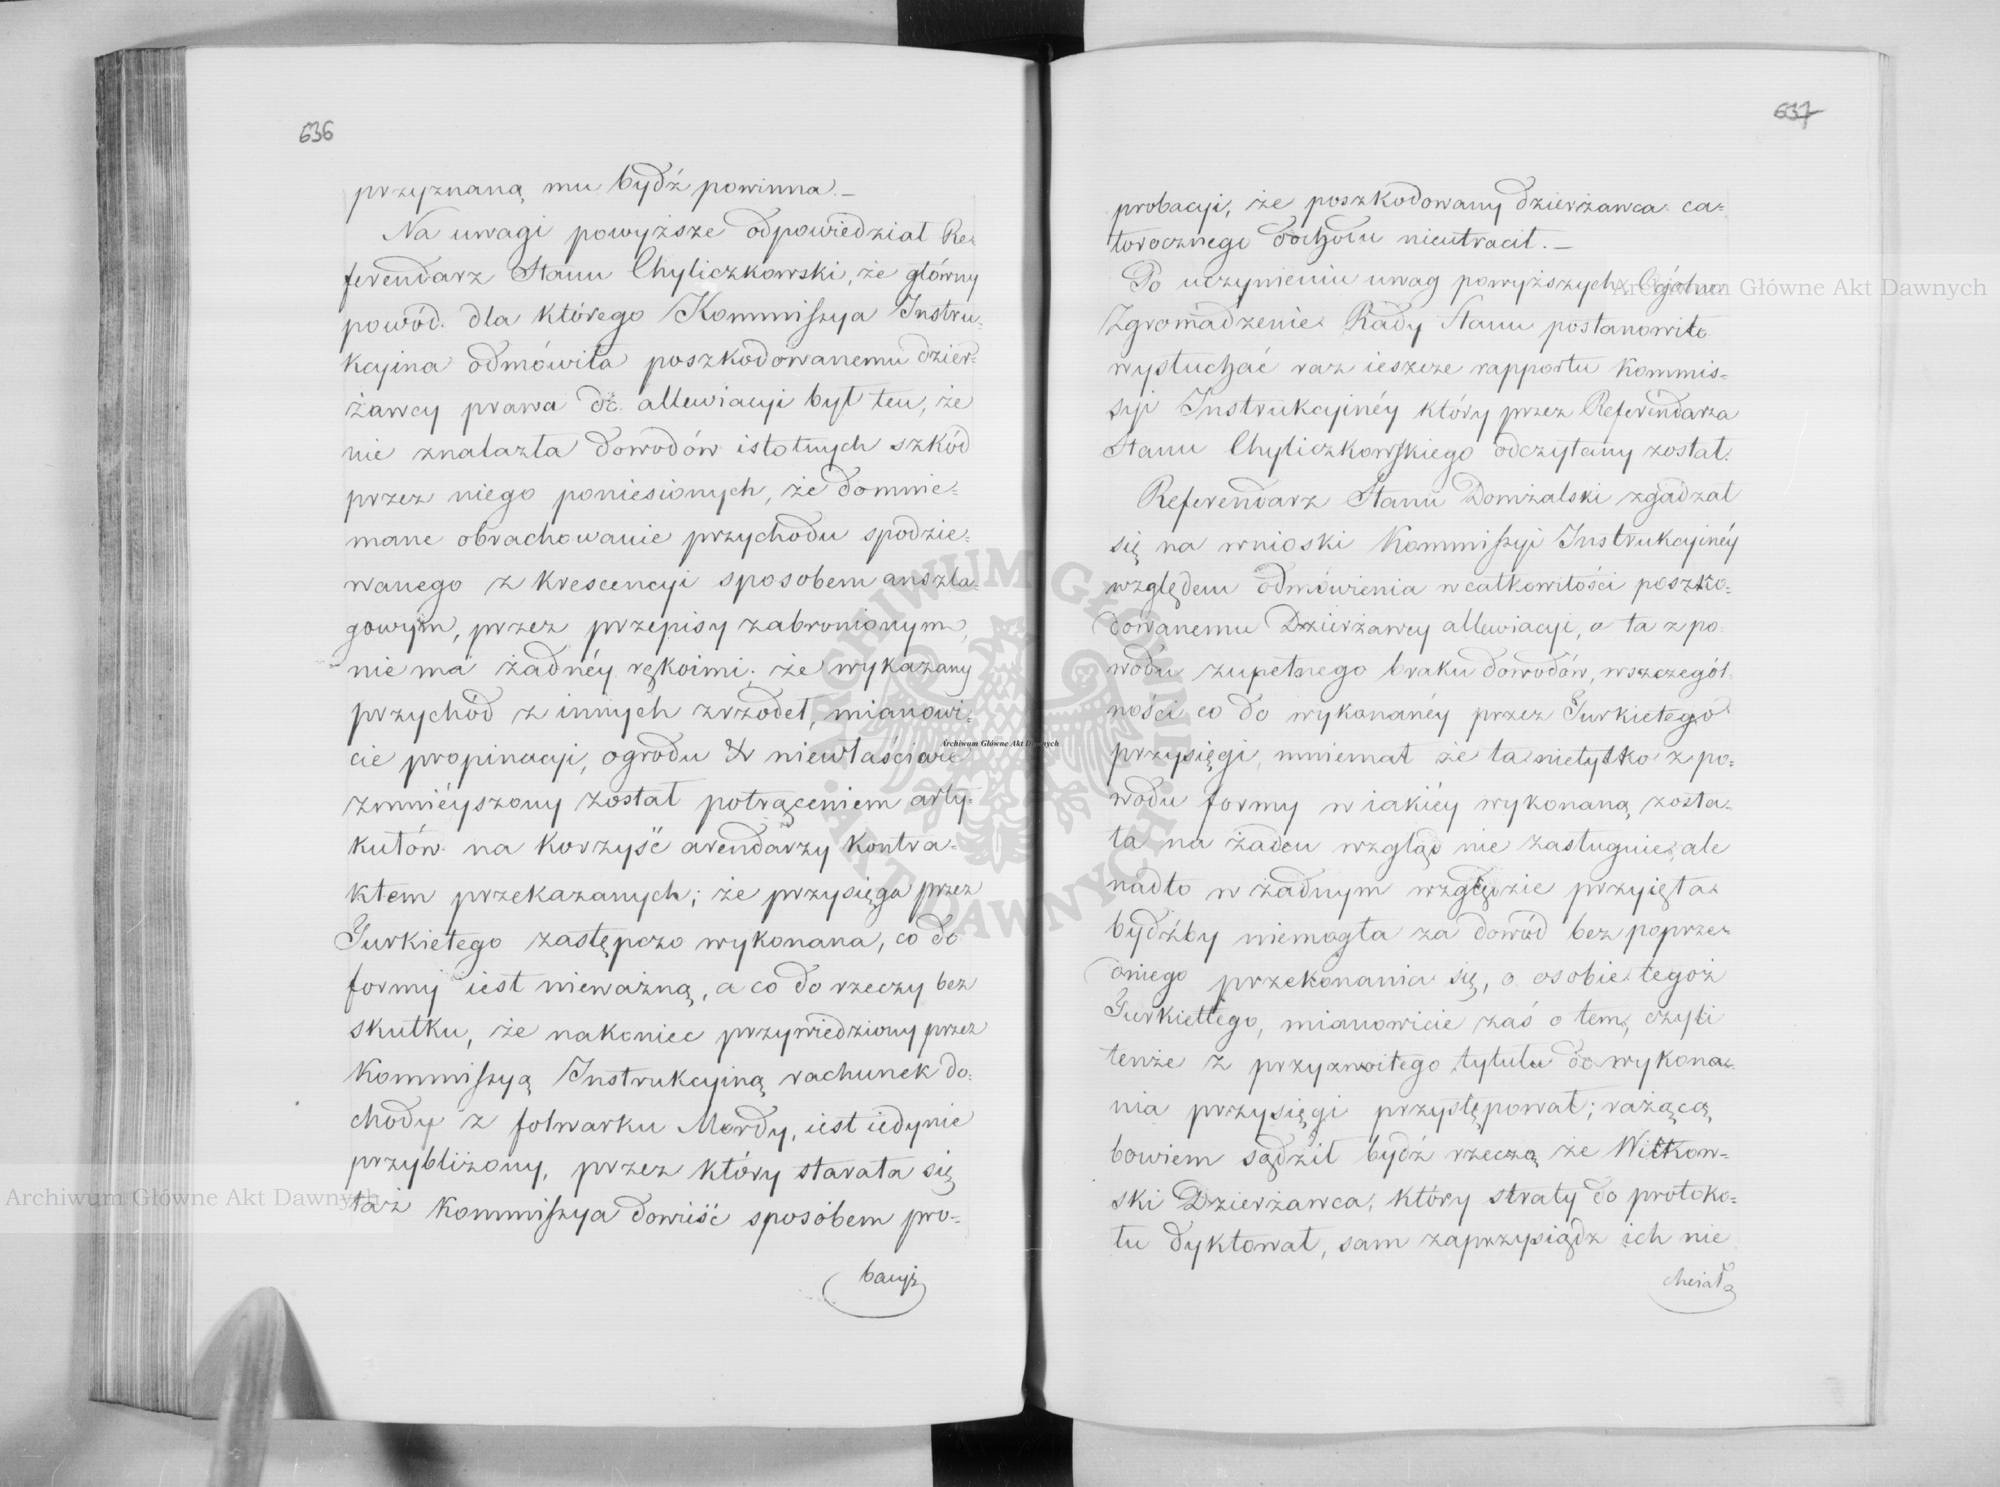 636
przyznaną mu bydź powinna.—
Na uwagi powyższe odpowiedział Re-
ferendarz Stanu Chyliczkowski, że główny
powód dla którego Kommissya Instru-
kcyina odmówiła poszkodowanemu dzier-
żawcy prawa do allewiacyi był ten, że
nie znalazła dowodów istotnych szkód
przez niego poniesionych, że domnie-
mane obrachowanie przychodu spodzie-
wanego z krescencyi sposobem anszla-
gowym, przez przepisy zabronionym,
nie ma żadnéy rękoimi; że wykazany
przychód z innych zrzodeł, mianowi-
cie propinacyi, ogrodu & niewłaściwie
zmniéyszony został potrąceniem arty-
kułów na korzyść arendarzy kontra-
ktem przekazanych; że przysięga przez
Turkiełego zastępczo wykonana, co do
formy iest nieważną, a co do rzeczy bez
skutku, że nakoniec przywiedziony przez
Kommissyą Instrukcyiną rachunek do-
chodu z folwarku Mordy, iest iedynie
przybliżony, przez który starała się
taż Kommissya dowieść sposobem pro-
bacyi
637
probacyi, że poszkodowany dzierżawca ca-
łorocznego dochodu nieutracił.—
Po uczynieniu uwag powyższych Ogólne
Zgromadzenie Rady Stanu postanowiło
wysłuchać raz ieszcze rapportu Kommis-
syi Instrukcyinéy który przez Referendarza
Stanu Chyliczkowskiego odczytany został.
Referendarz Stanu Domżalski zgadzał
się na wnioski Kommissyi Instrukcyinéy
względem odmówienia w całkowitości poszko-
dowanemu Dzierżawcy allewiacyi, a to z po-
wodu zupełnego braku dowodów, w szczegól-
ności co do wykonanéy przez Turkiełego
przysięgi, mniemał że ta nietylko z po-
wodu formy w iakiéy wykonaną zosta-
ła na żaden wzgląd nie zasługuie, ale
nadto w żadnym względzie przyięta
bydźby niemogła za dowód bez poprze-
dniego przekonania się, o osobie tegoż
Turkiełłego, mianowicie zaś o tem, czyli
tenże z przyzwoitego tytułu do wykona-
nia przysięgi przystępował; rażącą
bowiem sądził bydź rzeczą że Witkow-
ski Dzierżawca, który straty do protoko-
łu dyktował, sam zaprzysiądz ich nie
chciał
Archiwum Główne Akt Dawnych
Archiwum Główne Akt Dawnych
Archiwum Główne Akt Dawnych
ARCHIWUM GŁÓWNE AKT DAWNYCH